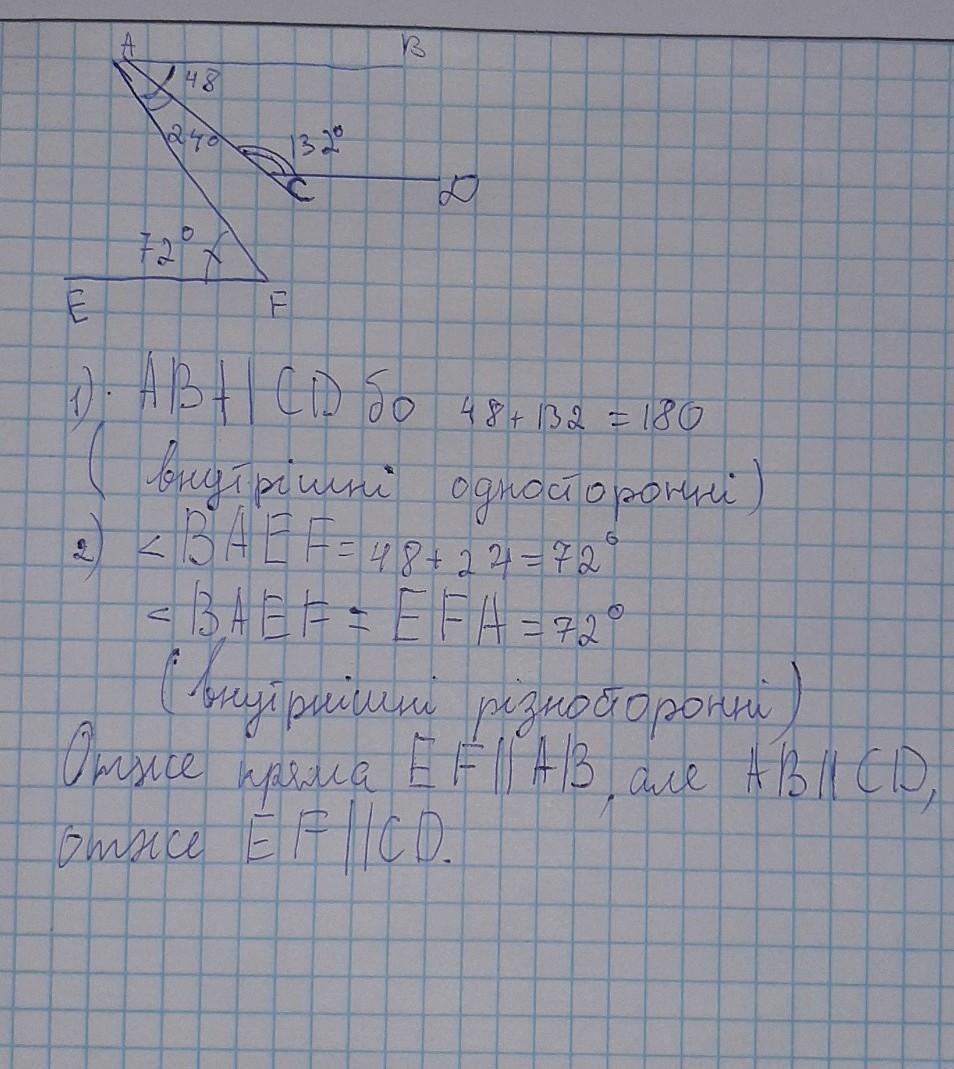 A B
48
240
132°
C D
72°
E F
1). AB || CD бо 48 + 132 = 180
( внутрішні односторонні)
2) < BAEF = 48 + 24 = 72°
< BAEF = EFA = 72°
(внутрнішні різносторонні)
Отже пряма EF || AB, але AB || CD,
отже EF || CD.